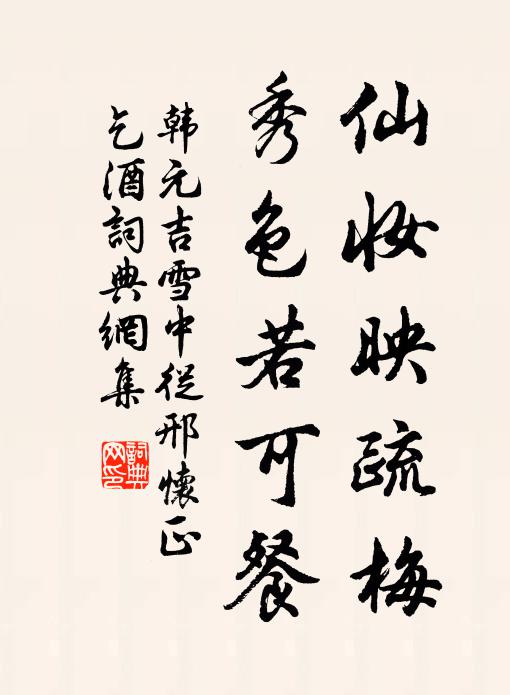 仙妆映疏梅
秀色若可餐
韩元吉雪中从邢懷正
乞酒詞典網集
詞典
网印